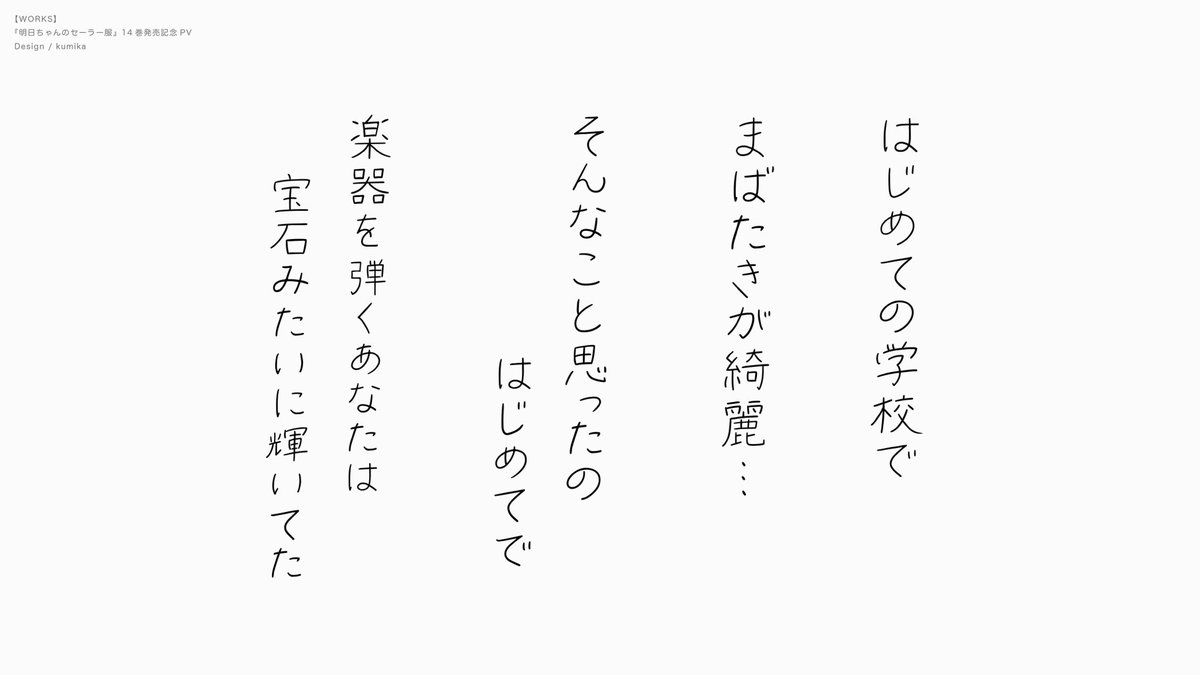 【WORKS】
『明日ちゃんのセーラー服』14巻発売記念PV
Design / kumika
はじめての学校で
まばたきが綺麗…
そんなこと思ったの
はじめてで
楽器を弾くあなたは
宝石みたいに輝いてた